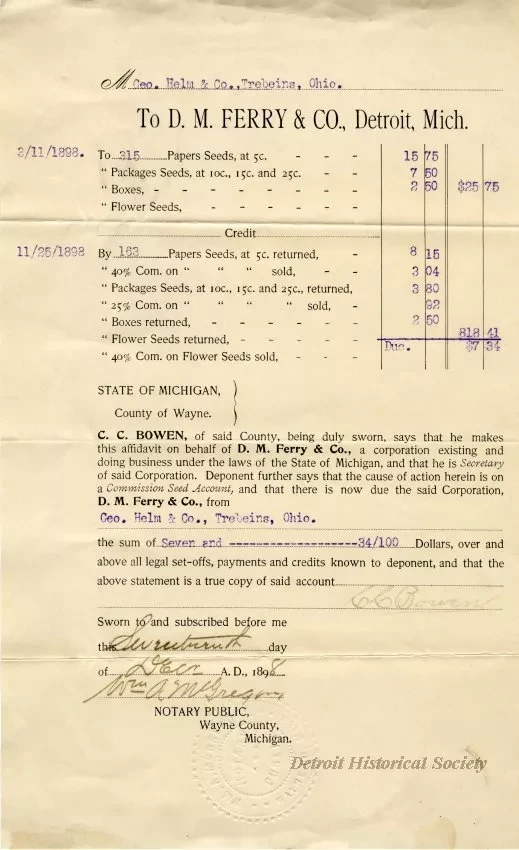 M Geo. Helm & Co., Trebeins, Ohio.
To D. M. FERRY & CO., Detroit, Mich.
3/11/1898. To 315 Papers Seeds, at 5c. - - - 15 75
" Packages Seeds, at 10c., 15c. and 25c. - - - 7 50
" Boxes, - - - - - - - - 2 50 $25 75
" Flower Seeds, - - - - - - -
Credit
11/25/1898 By 163 Papers Seeds, at 5c. returned, - 8 15
" 40% Com. on " " " sold, - - 3 04
" Packages Seeds, at 10c., 15c. and 25c., returned, 3 80
" 25% Com. on " " " " sold, - 92
" Boxes returned, - - - - - - 2 50
" Flower Seeds returned, - - - - - 818 41
" 40% Com. on Flower Seeds sold, - - - Due. $7 34
STATE OF MICHIGAN,
County of Wayne.
C. C. BOWEN, of said County, being duly sworn, says that he makes
this affidavit on behalf of D. M. Ferry & Co., a corporation existing and
doing business under the laws of the State of Michigan, and that he is Secretary
of said Corporation. Deponent further says that the cause of action herein is on
a Commission Seed Account, and that there is now due the said Corporation,
D. M. Ferry & Co., from
Geo. Helm & Co., Trebeins, Ohio.
the sum of Seven and -------------------34/100 Dollars, over and
above all legal set-offs, payments and credits known to deponent, and that the
above statement is a true copy of said account
C C Bowen
Sworn to and subscribed before me
this Seventeenth day
of Decr A. D., 1898
Wm A. McGregor
NOTARY PUBLIC,
Wayne County,
Michigan.
Detroit Historical Society